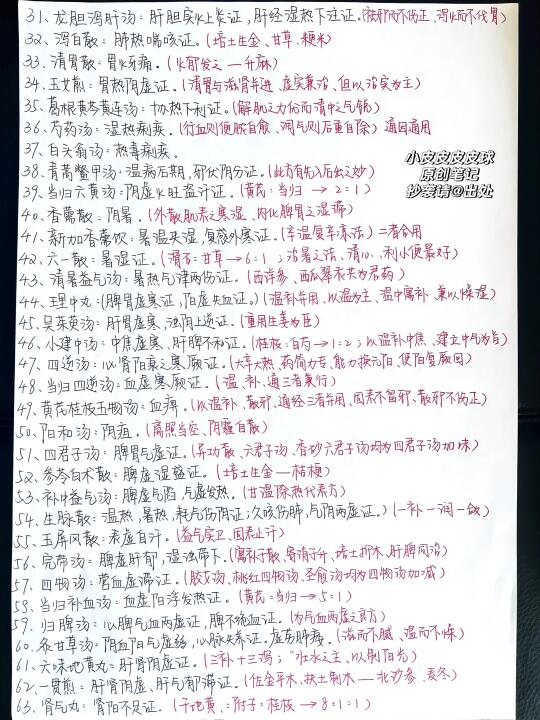 31、龙胆泻肝汤：肝胆实火上炎证，肝经湿热下注证。(祛邪而不伤正、泻火而不伐胃)
32、泻白散：肺热喘咳证。(培土生金、甘草、粳米)
33、清胃散：胃火牙痛。(火郁发之—升麻)
34、玉女煎：胃热阴虚证。(清胃与滋肾并进、虚实兼治、但以治实为主)
35、葛根黄芩黄连汤：协热下利证。(解肌之力俗而清中之气锐)
36、芍药汤：湿热痢疾。(行血则便脓自愈、调气则后重自除) 通因通用
37、白头翁汤：热毒痢疾。
38、青蒿鳖甲汤：温病后期，邪伏阴分证。(此方有先入后出之妙)
39、当归六黄汤：阴虚火旺盗汗证。(黄芪：当归 → 2：1)
40、香薷散：阴暑。(外散肌表之寒湿、内化脾胃之湿滞)
41、新加香薷饮：暑温夹湿，复感外寒证。(辛温复辛凉法) 二者合用
42、六一散：暑湿证。(滑石：甘草→6：1；治暑之法、清心、利小便最好)
43、清暑益气汤：暑热气津两伤证。(西洋参、西瓜翠衣共为君药)
44、理中丸：(脾胃虚寒证，阳虚失血证。)(温补并用、以温为主、温中寓补、兼以燥湿)
45、吴茱萸汤：肝胃虚寒，浊阴上逆证。(重用生姜为臣)
46、小建中汤：中焦虚寒、肝脾不和证。(桂枝：白芍→1：2；以温补中焦、建立中气为旨)
47、四逆汤：心肾阳衰之寒厥证。(大辛大热、药简力专、能力挽元阳、使阳复厥回)
48、当归四逆汤：血虚寒厥证。(温、补、通三者兼行)
49、黄芪桂枝五物汤：血痹。(以温补、散邪、通经三者并用、固表不留邪、散邪不伤正)
50、阳和汤：阴疽。(离照当空、阴霾自散)
51、四君子汤：脾胃气虚证。(异功散、六君子汤、香砂六君子汤均为四君子汤加味)
52、参苓白术散：脾虚湿盛证。(培土生金—桔梗)
53、补中益气汤：脾虚气陷，气虚发热。(甘温除热代表方)
54、生脉散：温热，暑热，耗气伤阴证；久咳伤肺，气阴两虚证。)(一补一润一敛)
55、玉屏风散：表虚自汗。(益气实卫、固表止汗)
56、完带汤：脾虚肝郁，湿浊带下。(寓补于散、寄消于升、培土抑木、肝脾同治)
57、四物汤：营血虚滞证。(胶艾汤、桃红四物汤、圣愈汤均为四物汤加减)
58、当归补血汤：血虚阳浮发热证。(黄芪：当归→5：1)
59、归脾汤：心脾气血两虚证，脾不统血证。(为气血两虚之良方)
60、炙甘草汤：阴血阳气虚弱，心脉失养证。虚劳肺痿。(滋而不腻、温而不燥)
61、六味地黄丸：肝肾阴虚证。(三补十三泻；"壮水之主、以制阳光)
62、一贯煎：肝肾阴虚、肝气郁滞证。(佐金平木、扶土制木—北沙参、麦冬)
63、肾气丸：肾阳不足证。(干地黄：附子：桂枝→8：1：1)
小皮皮皮皮球
原创笔记
抄袭请@出处